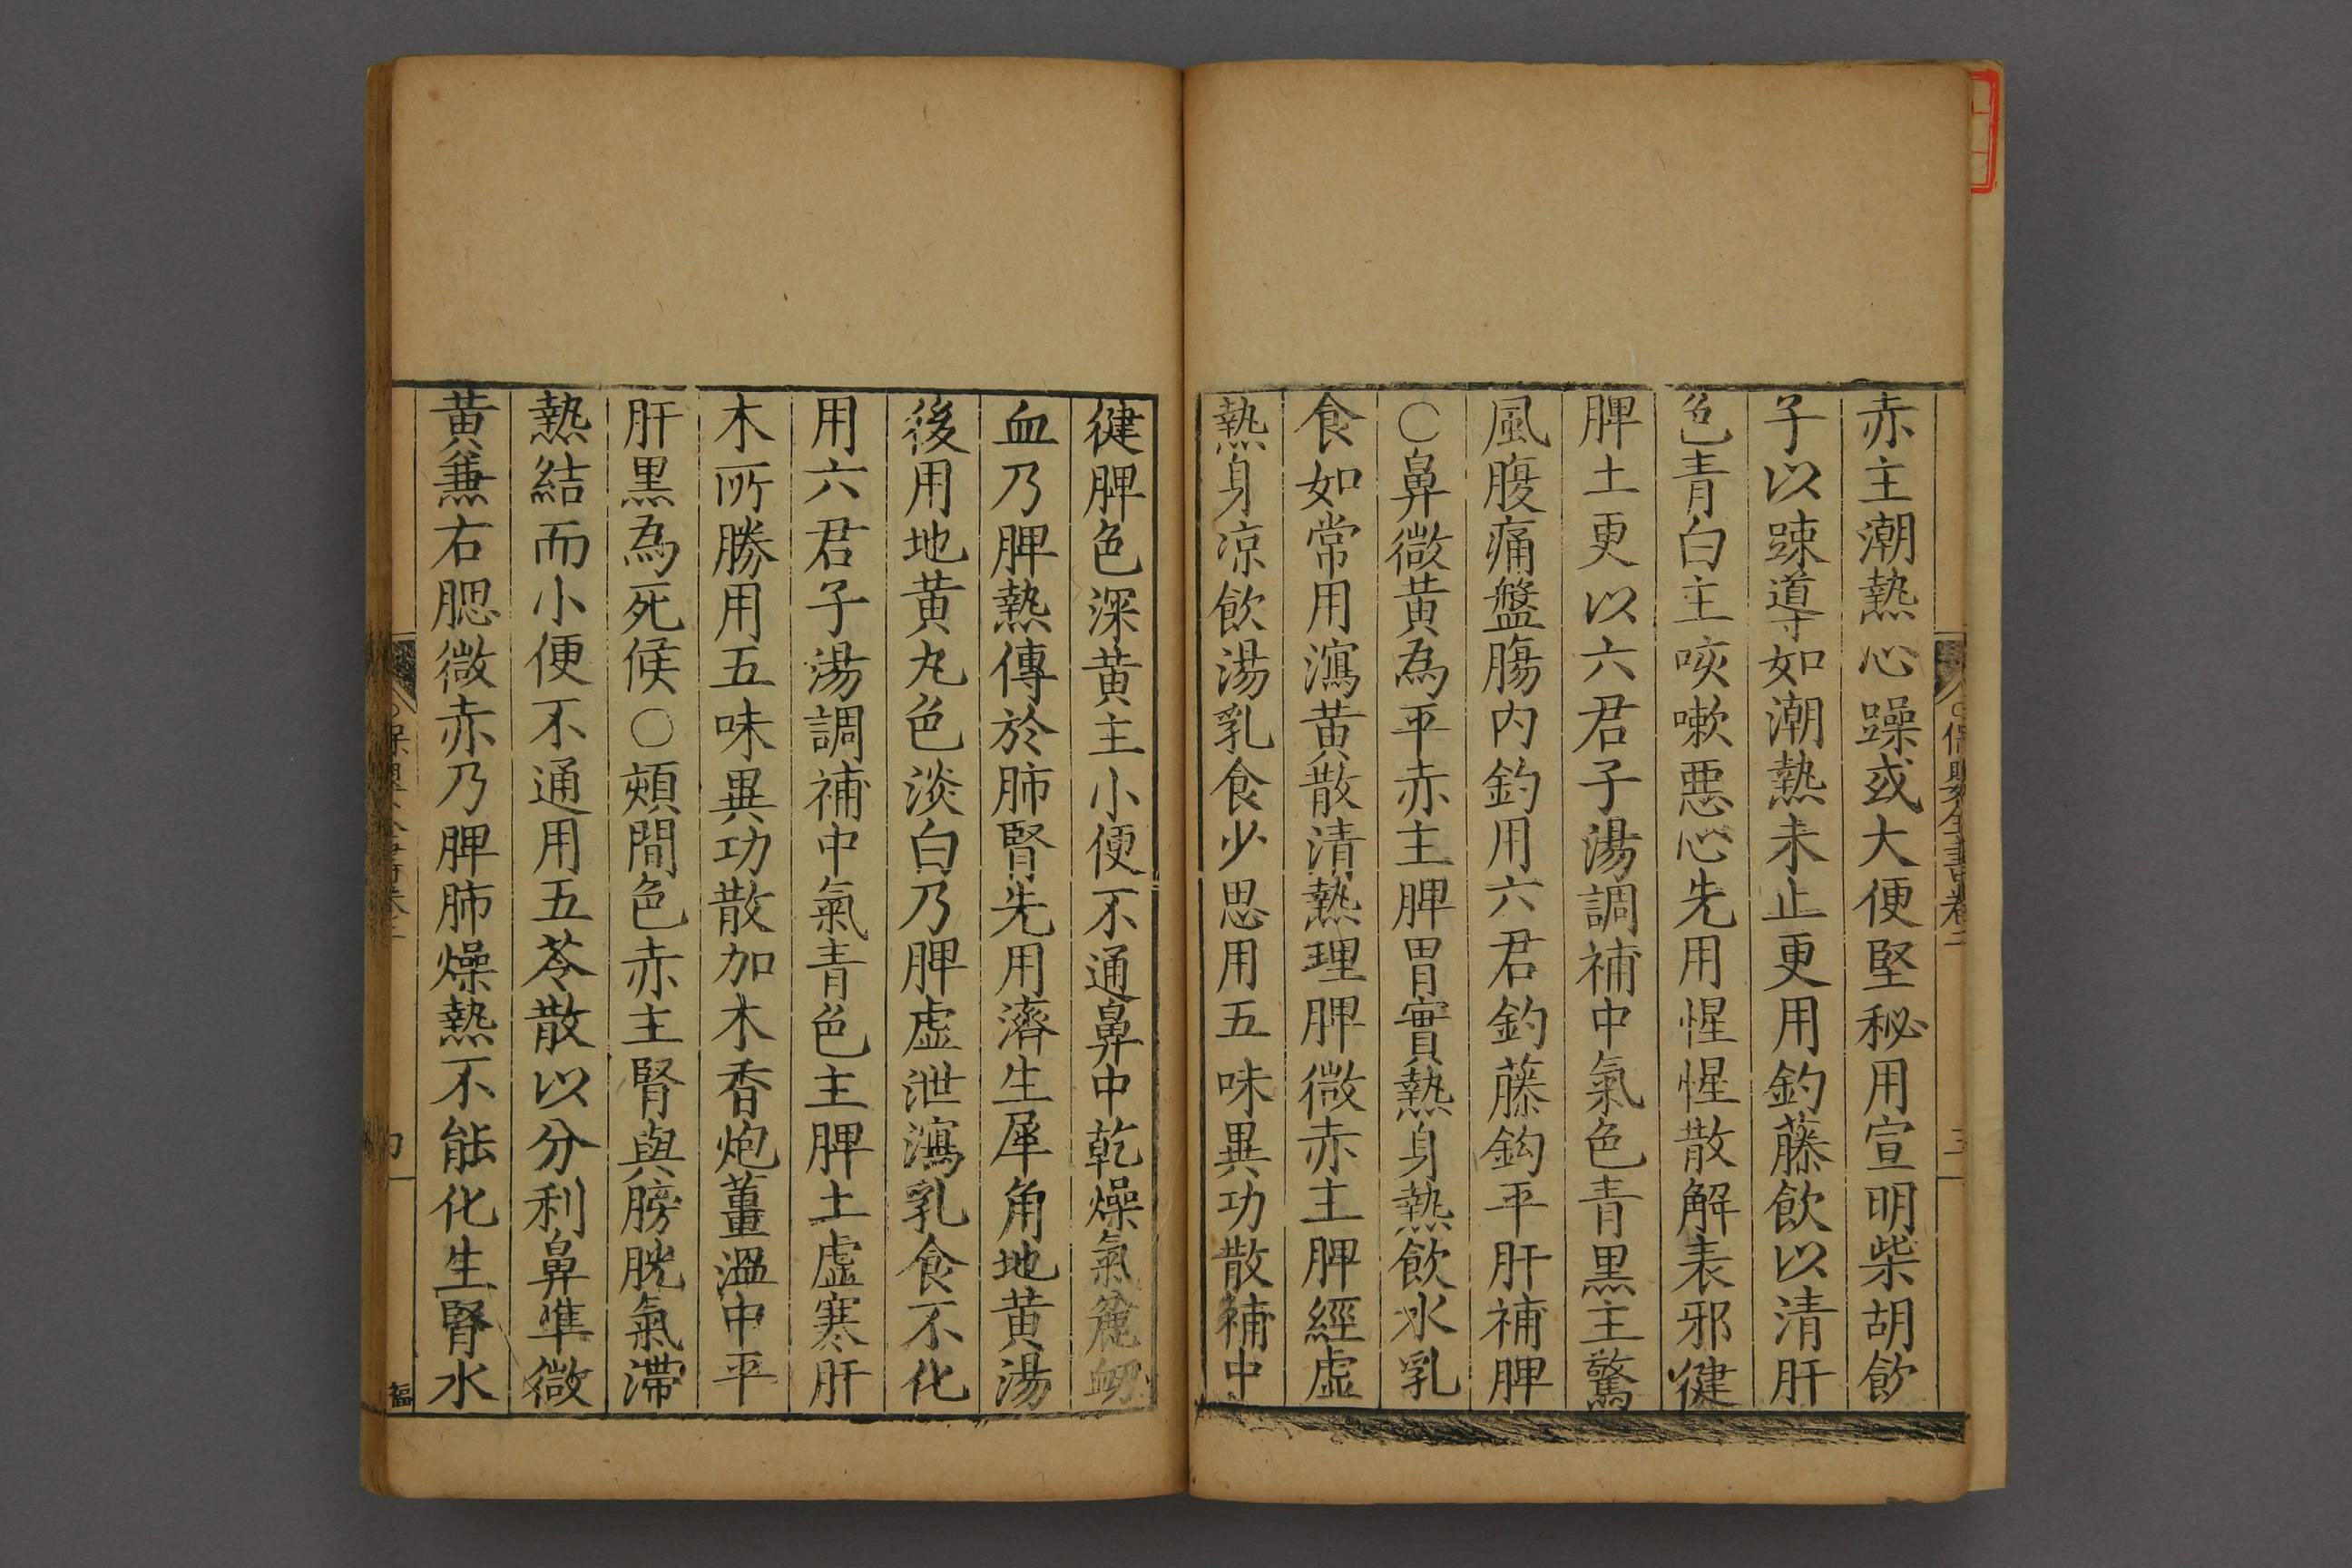 赤主潮熱心躁或大便堅秘用宣明柴胡飲
子以踈導如潮熱未止更用釣藤飲以清肝
色青白主咳嗽惡心先用惺惺散解表邪健
脾土更以六君子湯調補中氣色青黑主驚
風腹痛盤腸内釣用六君釣藤鈎平肝補脾
〇鼻微黄為平赤主脾胃實熱身熱飲水乳
食如常用瀉黄散清熱理脾微赤主脾經虛
熱身凉飲湯乳食少思用五味異功散補中
健脾色深黄主小便不通鼻中乾燥氣麄衂
血乃脾熱傳於肺腎先用濟生犀角地黄湯
後用地黄丸色淡白乃脾虛泄瀉乳食不化
用六君子湯調補中氣青色主脾土虛寒肝
木所勝用五味異功散加木香炮薑溫中平
肝黒為死候〇頰間色赤主腎與膀胱氣滯
熱結而小便不通用五苓散以分利鼻準微
黄兼右腮微赤乃脾肺燥熱不能化生腎水
保嬰全書卷二
三
福